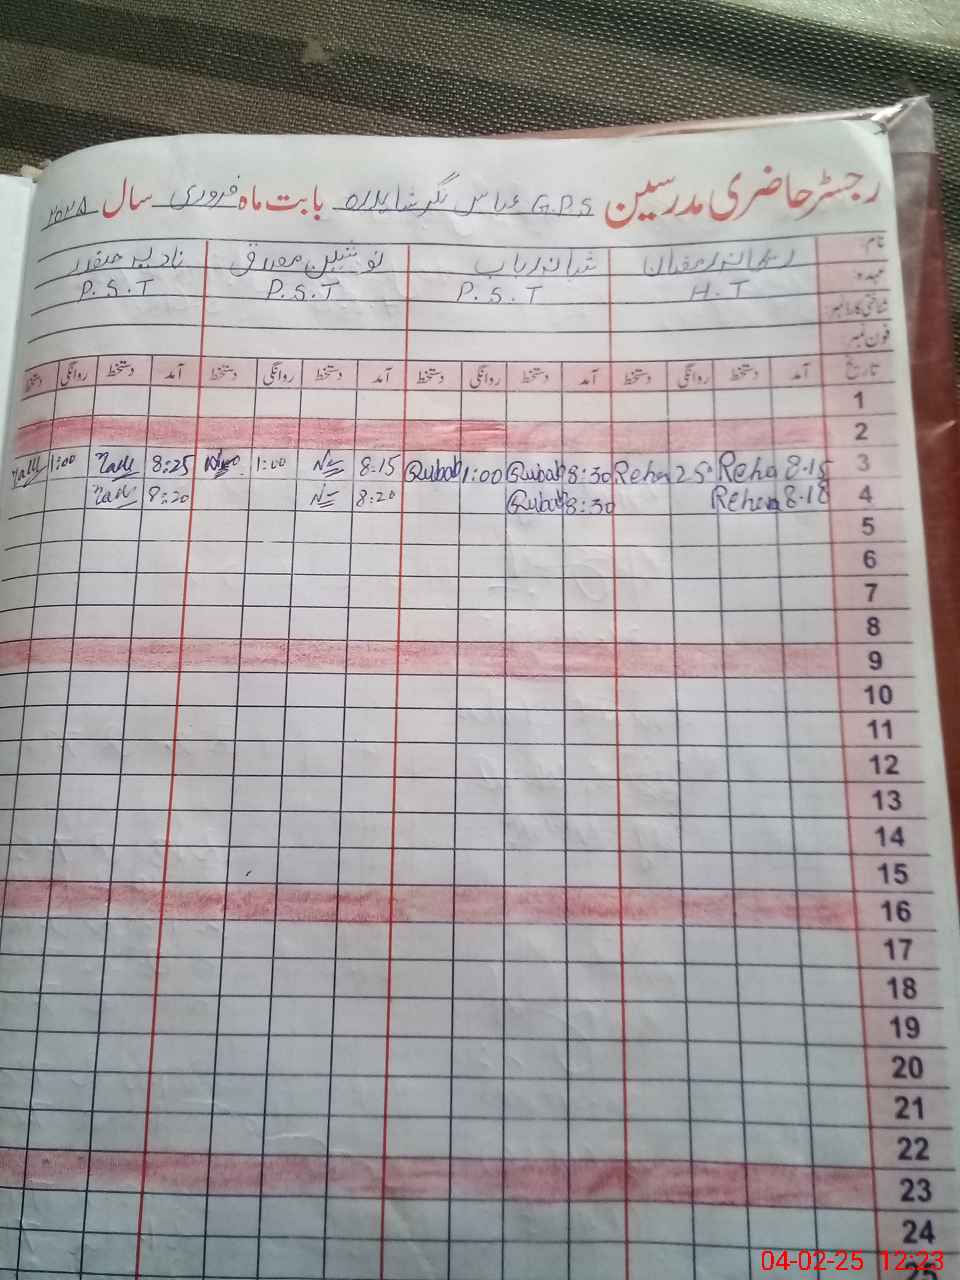 رجسٹر حاضری مدرسین G.P.S عباس نگر شاہدرہ بابت ماہ فروری سال ۲۰۲۵
نام ریحانہ رمضان شبانہ رباب نوشین صدیق نادیہ صفدر
عہدہ H.T P.S.T P.S.T P.S.T
شناختی کارڈ نمبر
فون نمبر
تاریخ آمد دستخط روانگی دستخط آمد دستخط روانگی دستخط آمد دستخط روانگی دستخط آمد دستخط روانگی دستخط
1
2
3 8.15 Reha Reha 8:30 Rubab 1:00 Rubab 8.15 1:00 8:25 1:00
4 8.18 Reha 8:30 Rubab 8:20 8:20
5
6
7
8
9
10
11
12
13
14
15
16
17
18
19
20
21
22
23
24
04-02-25 12:23